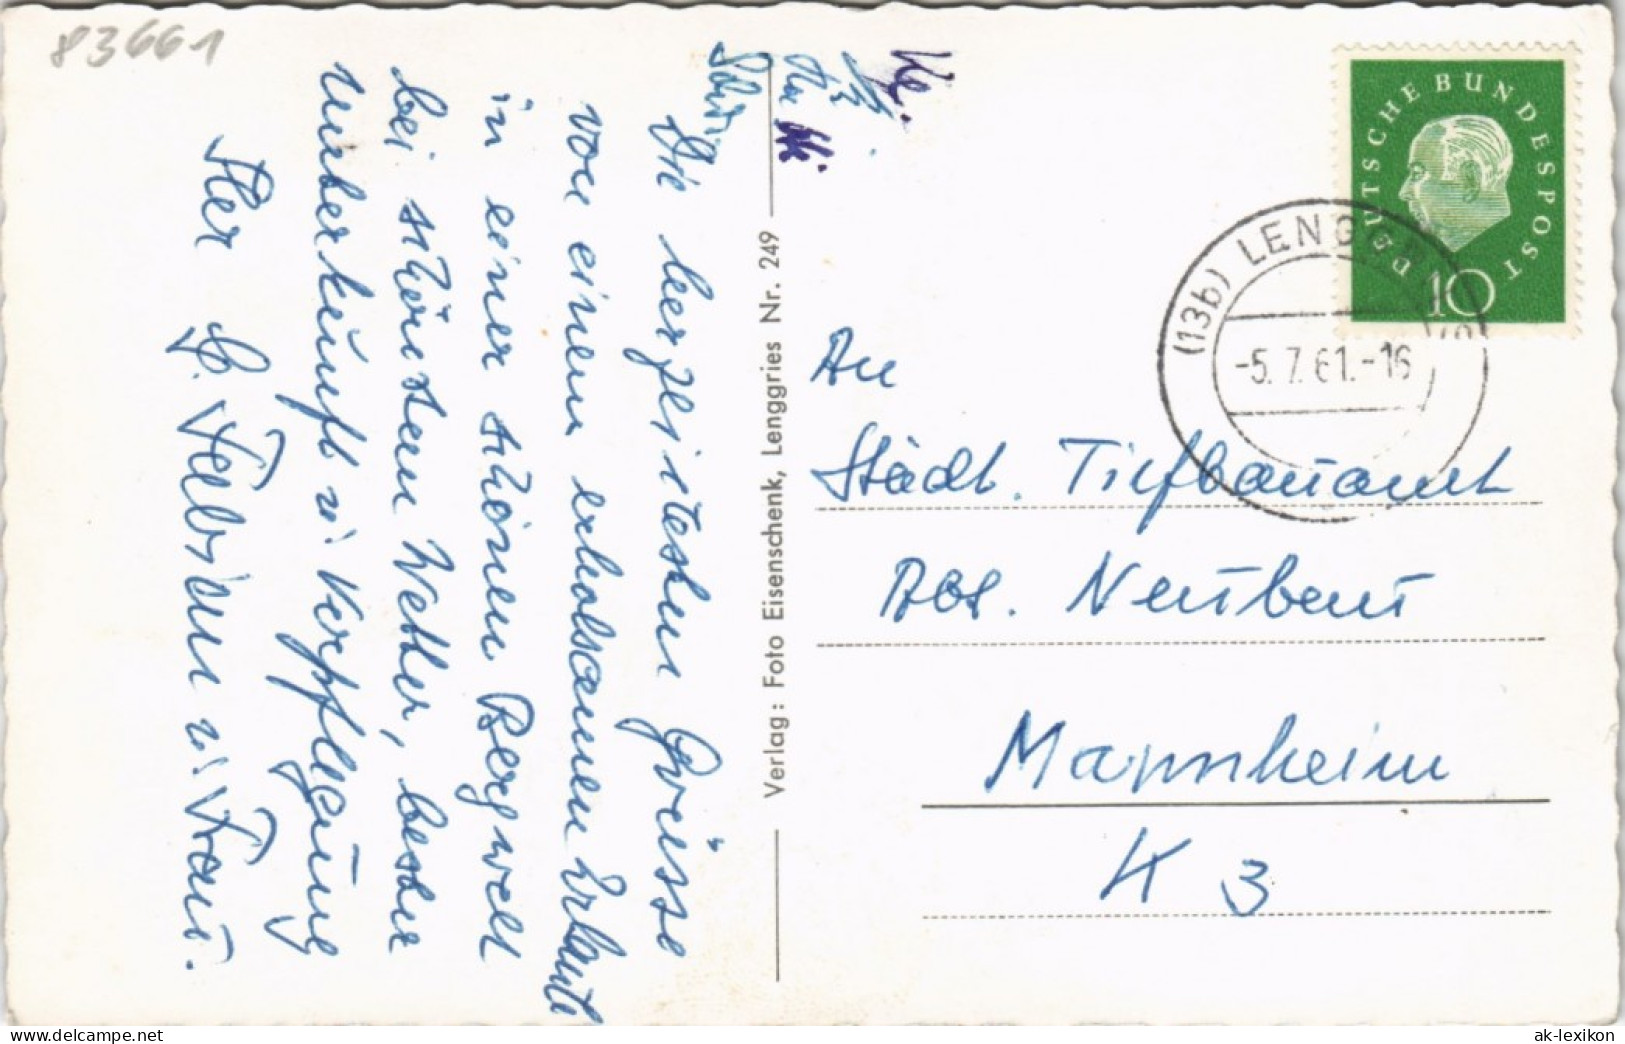 83661
Die herzlichsten Grüsse
von einem erholsamen Urlaub
in einer schönen Bergwelt
bei schönstem Wetter, bester
Unterkunft u. Verpflegung
Ihr H. Fabian u. Frau.
Verlag: Foto Eisenschenk, Lenggries Nr. 249
DEUTSCHE BUNDESPOST
10
(13b) LENGGRIES
-5.7.61.-16
An
Städt. Tiefbauamt
Abt. Neubau
Mannheim
K 3
www.delcampe.net
ak-lexikon